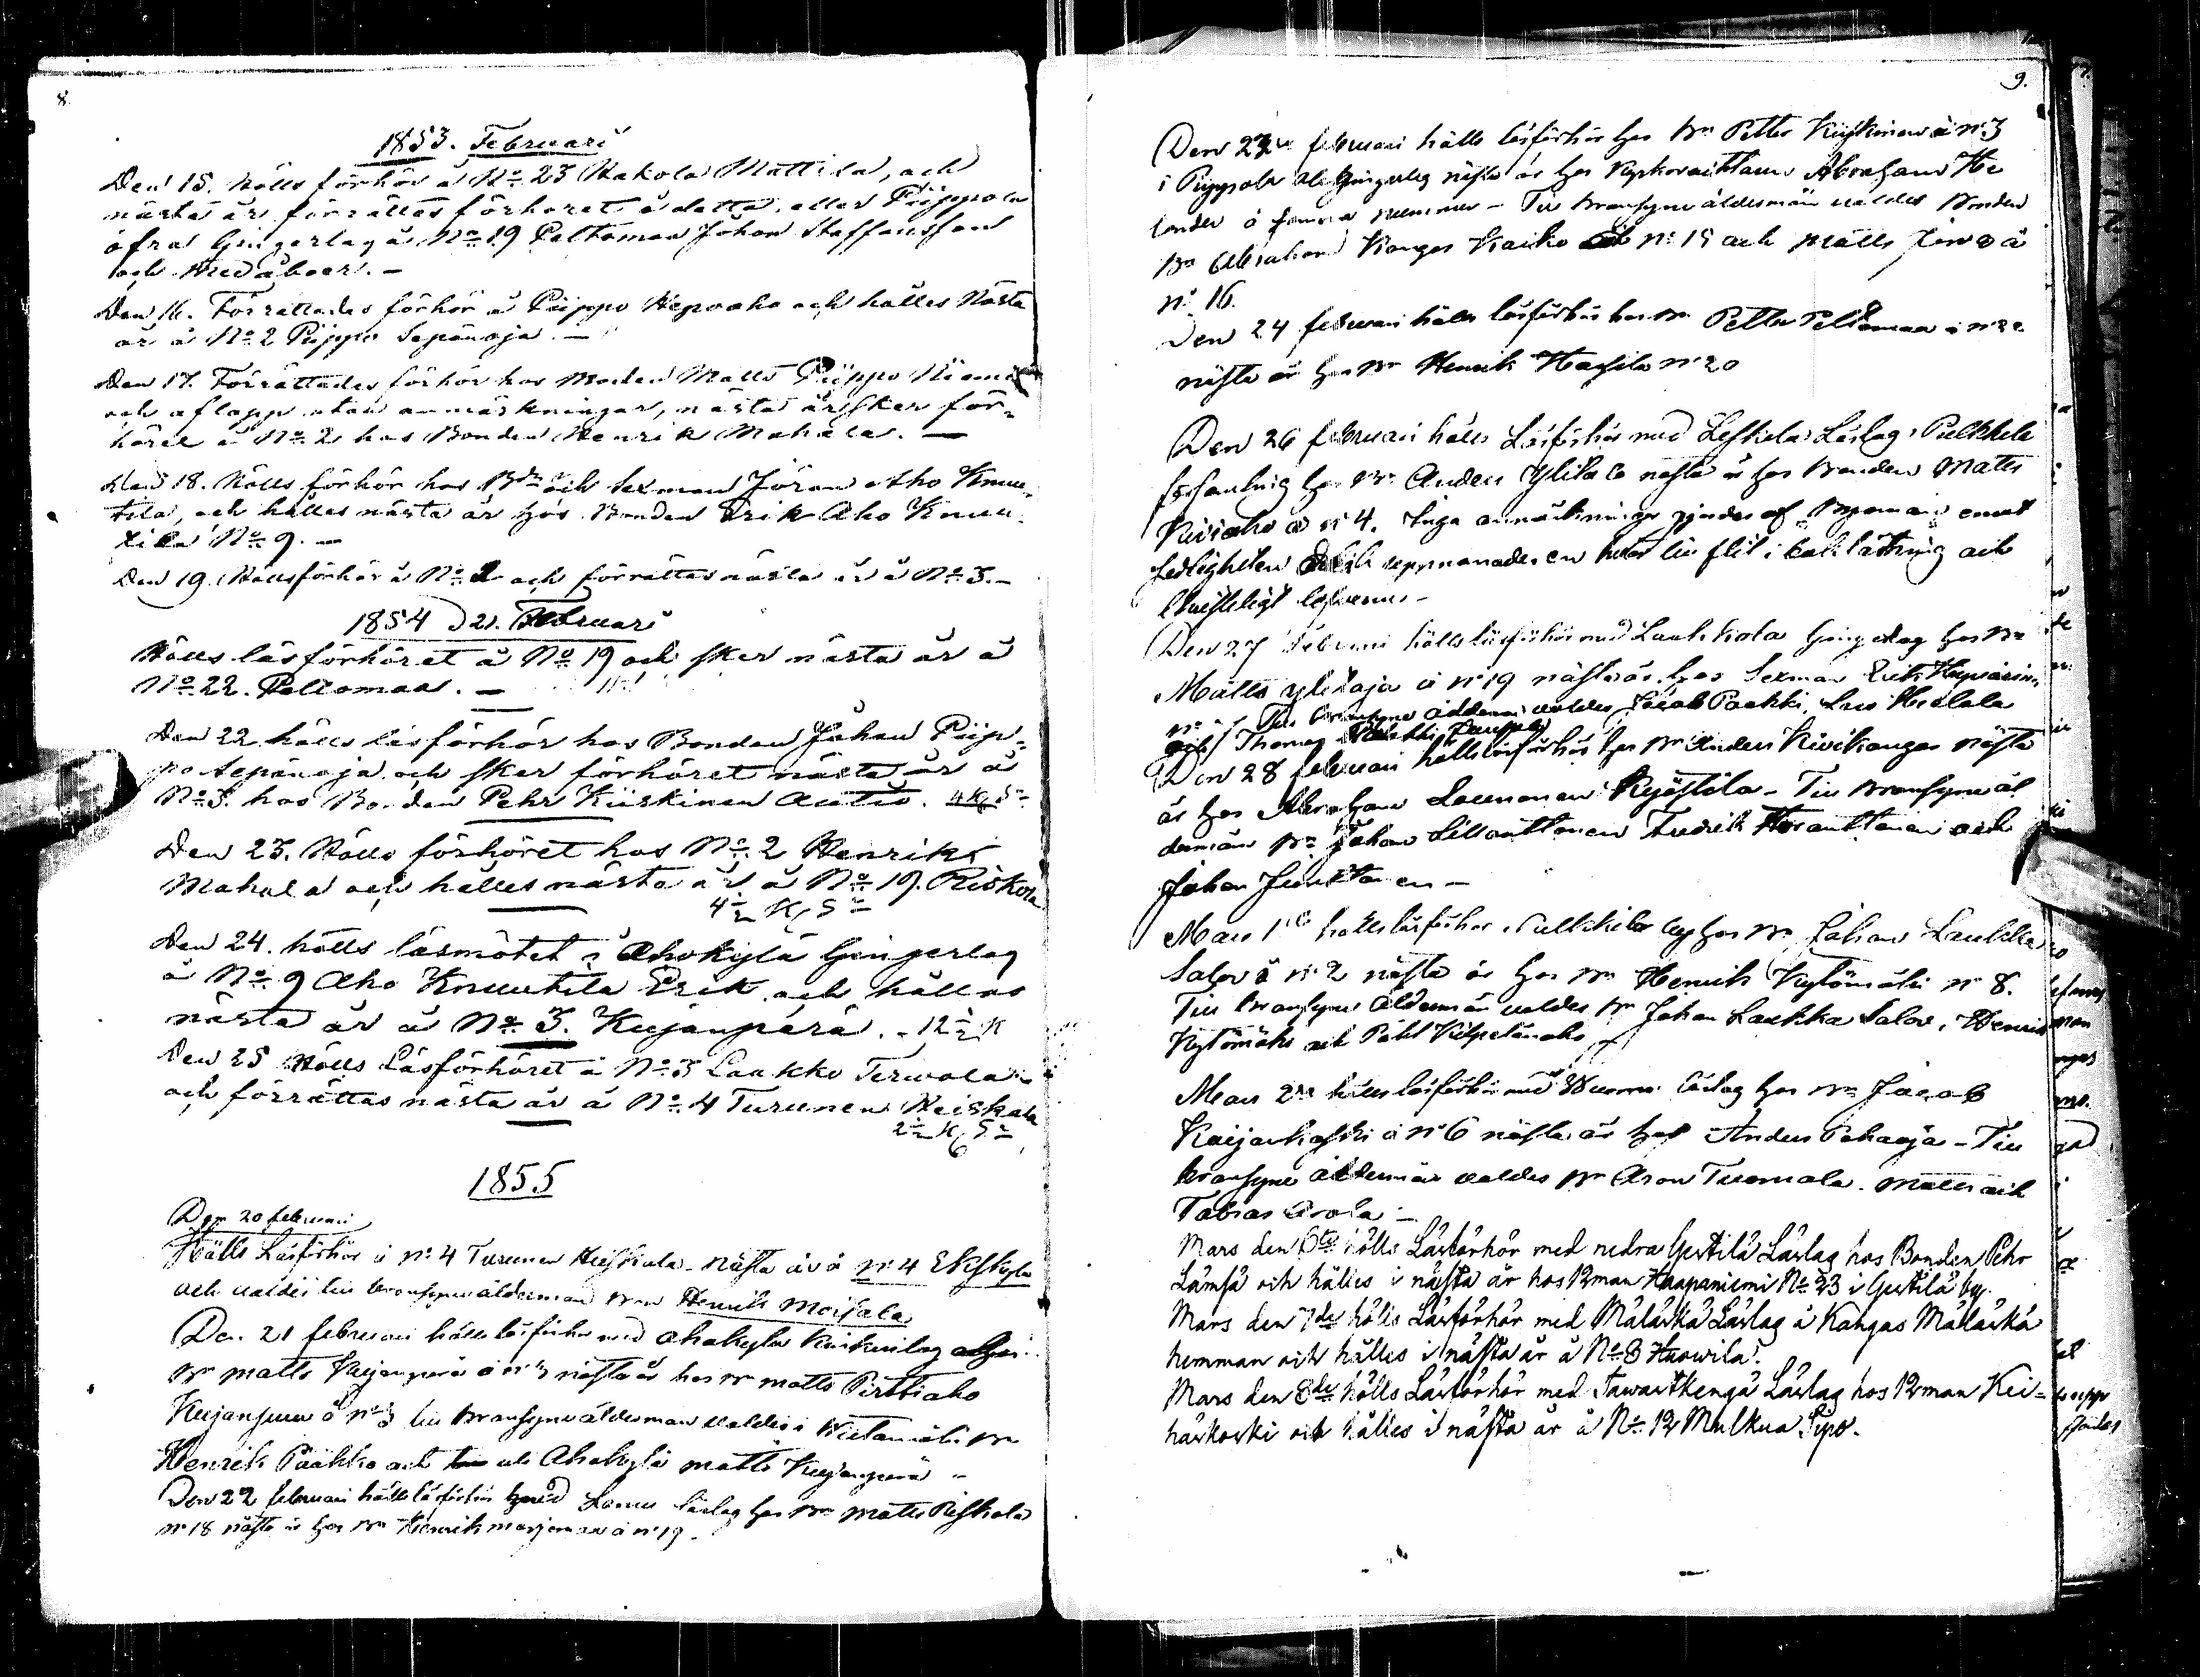 8.
1853. Februari
Den 15. hölls förhör å No 23 Hakola Mattila, och
nästa år förrättas förhöret å detta, eller Piippola
öfra Gingerlag å No 19 Peltomaa Johan Staffansson
och medåboer. –
Den 16. Förrättades förhör å Piippo Hepoaho och hålles Nästa
år å No 2 Piippo Sepänoja. –
Den 17. Förrättades förhör hos Bonden Matts Piippo Niema
och aflopp utan anmärkningar, nästa år sker för-
höret å No 2 hos Bonden Henrik Mahala. –
Den 18. Hölls förhör hos Bdn och Sexman Jöran Aho Knuu-
tila, och hålles nästa år hos Bonden Erik Aho Knuu-
tila No 9. –
Den 19. Hölls förhör å No 2 och förrättas nästa år å No 3. –
1854 D 21. Februari
Hölls läsförhöret å No 19 och sker nästa år å
No 22. Peltomaa. –
Den 22 hölls läsförhör hos Bonden Johan Piip-
po Sepänoja och sker förhöret nästa år å
No 3. hos Bonden Pehr Kiiskinen Autio.
Den 23. Hölls förhöret hos No 2 Henrik
Mahala och hålles nästa år å No 19. Riskola
Den 24. hölls läsmötet i Ahokylä Gingerlag
å No 9 Aho Knuutila Erik och hålles
nästa år å No 3. Kujanperä. –
Den 25 Hölls Läsförhöret å No 3 Laukko Terwola
och förrättas nästa år å No 4 Turunen Heiskala
1855
Den 20 februari
Hölls Läsförhör å No 4 Turunen Heiskala – nästa år å No 4 Ekskylä
och valdes till bransyneålderman Bn Henrik Moisala
Den 21 februari hölls läsförhör med Ahokylä
Bn Matts Kujanperä å No 3 nästa år hos Bn Matts Pirttiaho
Kujanperä å No 3 till bransyneålderman valdes i Bn
Henrik Pääkko och Ahokylä Matts Kujanperä –
Den 22 februari hölls läsförhör med Lamu läslag hos Bn Matts Riskala
No 18 nästa år hos Bn Henrik å No 19.
9.
Den 23 februari hölls läsförhör hos Bn Petter Kiiskinen å No 3
i Piippola Gingerlag nästa år hos Kyrkovaktaren Abraham He
lander å samma nummer – Till bransyneåldermän valdes Bonden
Bn Abraham Kangas Kaiko No 15 och Matts å
No 16.
Den 24 februari hölls läsförhör hos Bn Petter Peltomaa å No 22
nästa år hos Bn Henrik Hassila No 20
Den 26 februari hölls Läsförhör med Leskelä Läslag i Pulkkila
församling hos Bn Anders Ylitalo nästa år hos Bonden Matts
Kiviaho å No 4. Inga anmärkningar gjordes af Byamän emot
sedligheten uppmanades en hvar till flit i bokläsning och
christeligt lefverne –
Den 27 februari hölls läsförhör med Laukkola Gingerlag hos Bn
Matts Ylitaja å No 19 nästa år hos Sexman Erik
No Till bransyne åldermän valdes Jacob Paakki, Lars Heilala
och Thomas
Den 28 februari hölls läsförhör hos Bn Anders Kivikangas nästa
år hos Abraham Lounonen Kyöstilä – Till bransyneål
dermän Bn Johan Sillanttanen Fredrik och
Johan Junttanen –
Mars 1sta hölls läsförhör i Pulkkila by hos Bn Johan Laukka
Salo å No 2 nästa år hos Bn Henrik Kytömäki No 8.
Till bransyne åldermän valdes Bn Johan Laukka Salo, Henrik
Kytömäki och Pahl
Mars 2dra hölls läsförhör med läslag hos Bn Jacob
å No 6 nästa år hos Anders Pehaoja – Till
bransyne åldermän valdes Bn Aron Tuomala. Matts och
Tobias Arola –
Mars den 6te hölls Läsförhör med nedra Gestilä Läslag hos Bonden Pehr
Lämsä och hålles i nästa år hos 12man Haapaniemi No 23 i Gestilä by.
Mars den 7de hölls Läsförhör med Mäläskä Läslag å Kangas Mäläskä
hemman och hålles i nästa år å No 8 Huowila.
Mars den 8de hölls Läsförhör med Tawastkenga Läslag hos 12man Kei-
häskoski och hålles i nästa år å No 12 Mulkua Sipo.